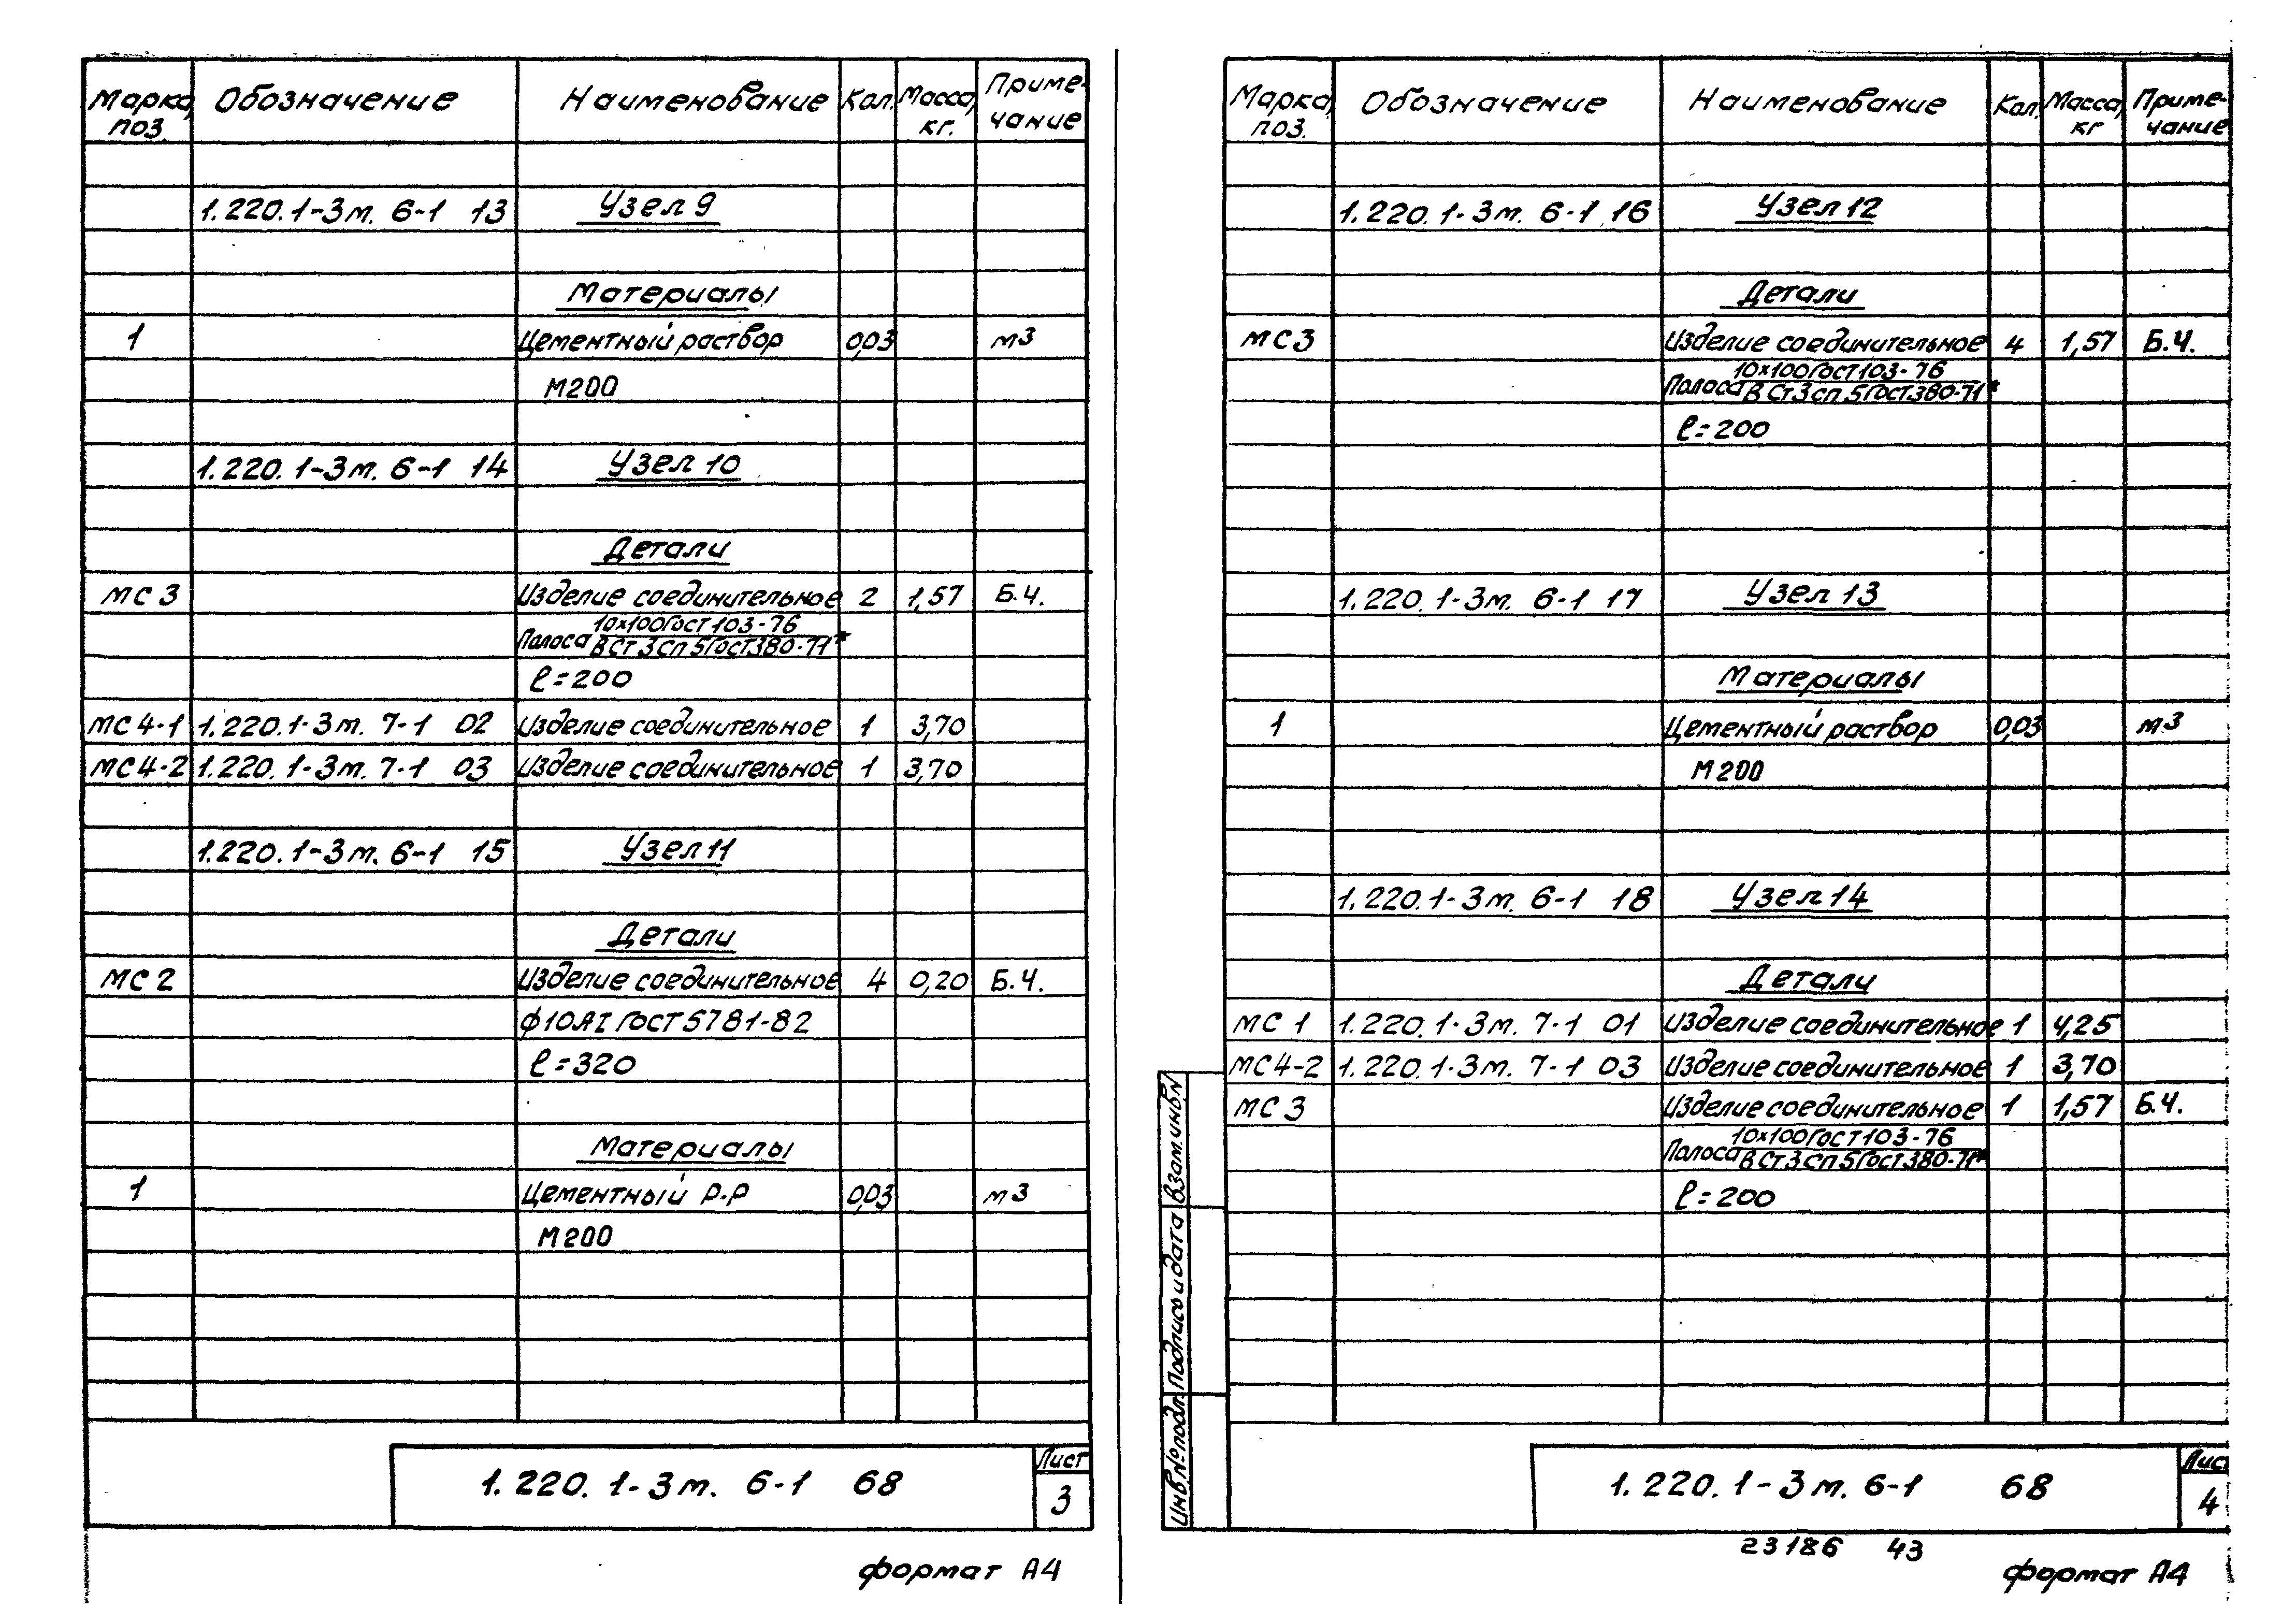 Марка, поз. Обозначение Наименование Кол. Масса, кг. Приме-чание
1.220.1-3м. 6-1 13 Узел 9
Материалы
1 Цементный раствор 0,03 м3
М200
1.220.1-3м. 6-1 14 Узел 10
Детали
МС 3 Изделие соединительное 2 1,57 Б.Ч.
10х100 ГОСТ 103-76
Полоса В Ст 3 сп 5 ГОСТ 380-71*
ℓ=200
МС 4-1 1.220.1-3м. 7-1 02 Изделие соединительное 1 3,70
МС 4-2 1.220.1-3м. 7-1 03 Изделие соединительное 1 3,70
1.220.1-3м. 6-1 15 Узел 11
Детали
МС 2 Изделие соединительное 4 0,20 Б.Ч.
ф10АI ГОСТ 5781-82
ℓ=320
Материалы
1 Цементный р-р 0,03 м3
М200
1.220.1-3м. 6-1 68
Лист
3
формат А4
Марка, поз. Обозначение Наименование Кол. Масса, кг Приме-чание
1.220.1-3м. 6-1 16 Узел 12
Детали
МС3 Изделие соединительное 4 1,57 Б.Ч.
10х100 ГОСТ 103-76
Полоса В Ст 3 сп 5 ГОСТ 380-71*
ℓ=200
1.220.1-3м. 6-1 17 Узел 13
Материалы
1 Цементный раствор 0,03 м3
М200
1.220.1-3м. 6-1 18 Узел 14
Детали
МС 1 1.220.1-3м. 7-1 01 Изделие соединительное 1 4,25
МС4-2 1.220.1-3м. 7-1 03 Изделие соединительное 1 3,70
МС 3 Изделие соединительное 1 1,57 Б.Ч.
10х100 ГОСТ 103-76
Полоса В Ст 3 сп 5 ГОСТ 380-71*
ℓ=200
Инв.№ подл. Подпись и дата Взам.инв.N
1.220.1-3м. 6-1 68
Лист
4
23186 43
формат А4